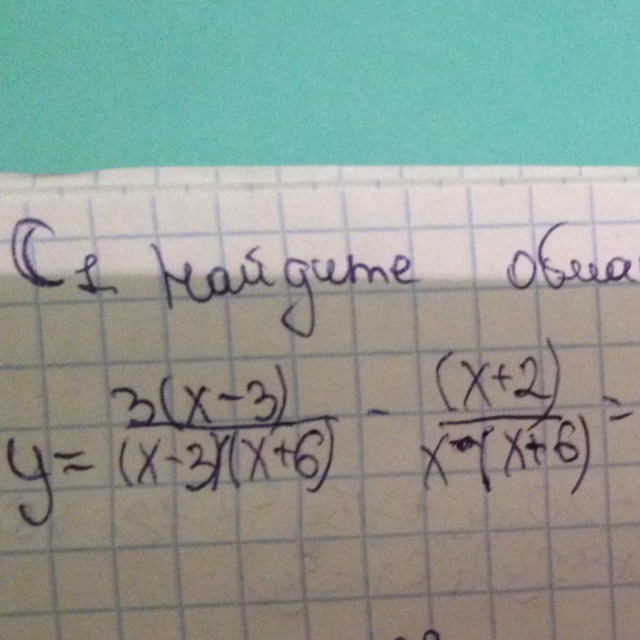 C1. Найдите
y = 3(x-3)/(x-3)(x+6) - (x+2)/x-(x+6) =